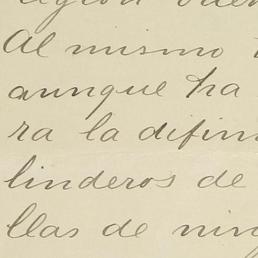 Al mismo
aunque ha
ra la difin
linderos de
llas de nin